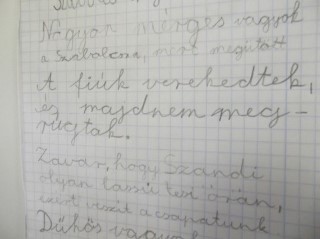 Nagyon mérges vagyok
a Szabolcsra, mert megütött
A fiúk verekedtek,
és majdnem meg-
rúgtak.
Zavar, hogy Szandi
olyan lassú tesi órán,
ezért veszít a csapatunk
Dühös vagyok